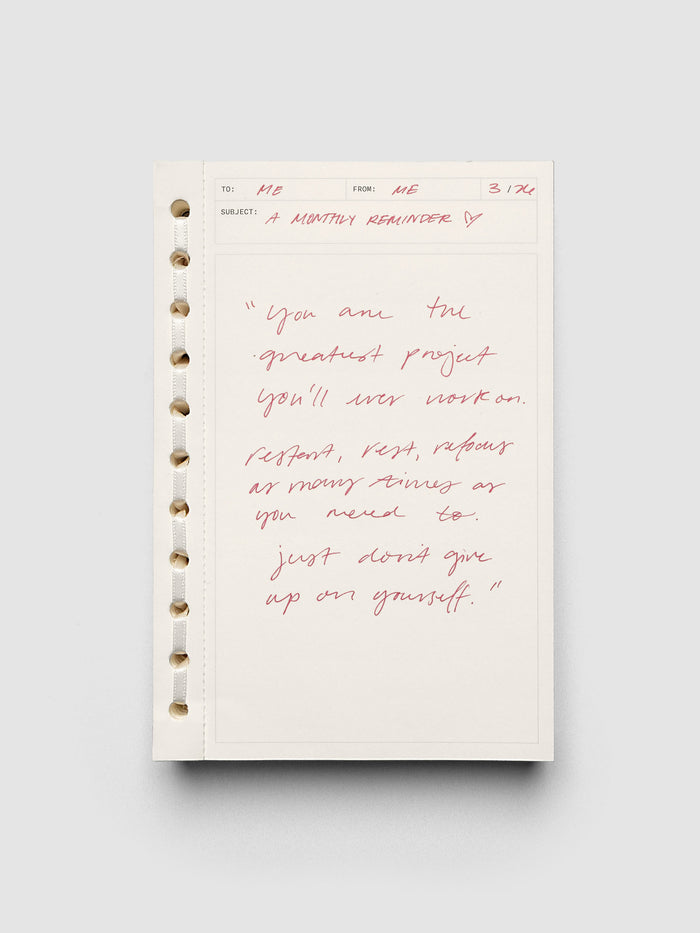 TO: ME FROM: ME 3/26
SUBJECT: A MONTHLY REMINDER ♡
"you are the
greatest project
you'll ever work on.
restart, rest, refocus
as many times as
you need to.
just don't give
up on yourself."